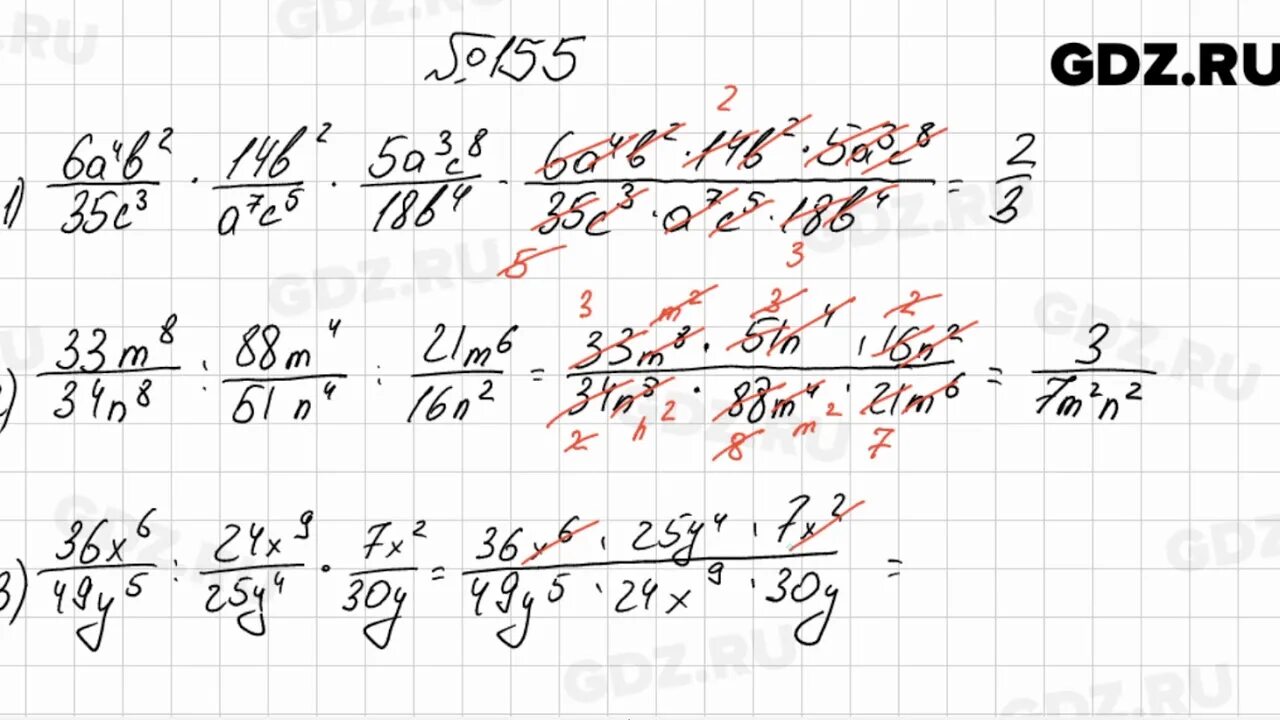 №155
GDZ.RU
1) 6a⁴b²/35c³ · 14b²/a⁷c⁵ · 5a³c⁸/18b⁴ - 6a⁴b² · 14b² · 5a³c⁸/35c³ · a⁷c⁵ · 18b⁴ = 2/3
2
5 3
2) 33m⁸/34n⁸ : 88m⁴/51n⁴ : 21m⁶/16n² = 33m⁸ · 51n⁴ · 16n²/34n⁸ · 88m⁴ · 21m⁶ = 3/7m²n²
3 m² 3 2
2 n² 8 m² 7
3) 36x⁶/49y⁵ : 24x⁹/25y⁴ · 7x²/30y = 36x⁶ · 25y⁴ · 7x²/49y⁵ · 24x⁹ · 30y =
GDZ.RU
GDZ.RU
GDZ.RU
GDZ.RU
GDZ.RU